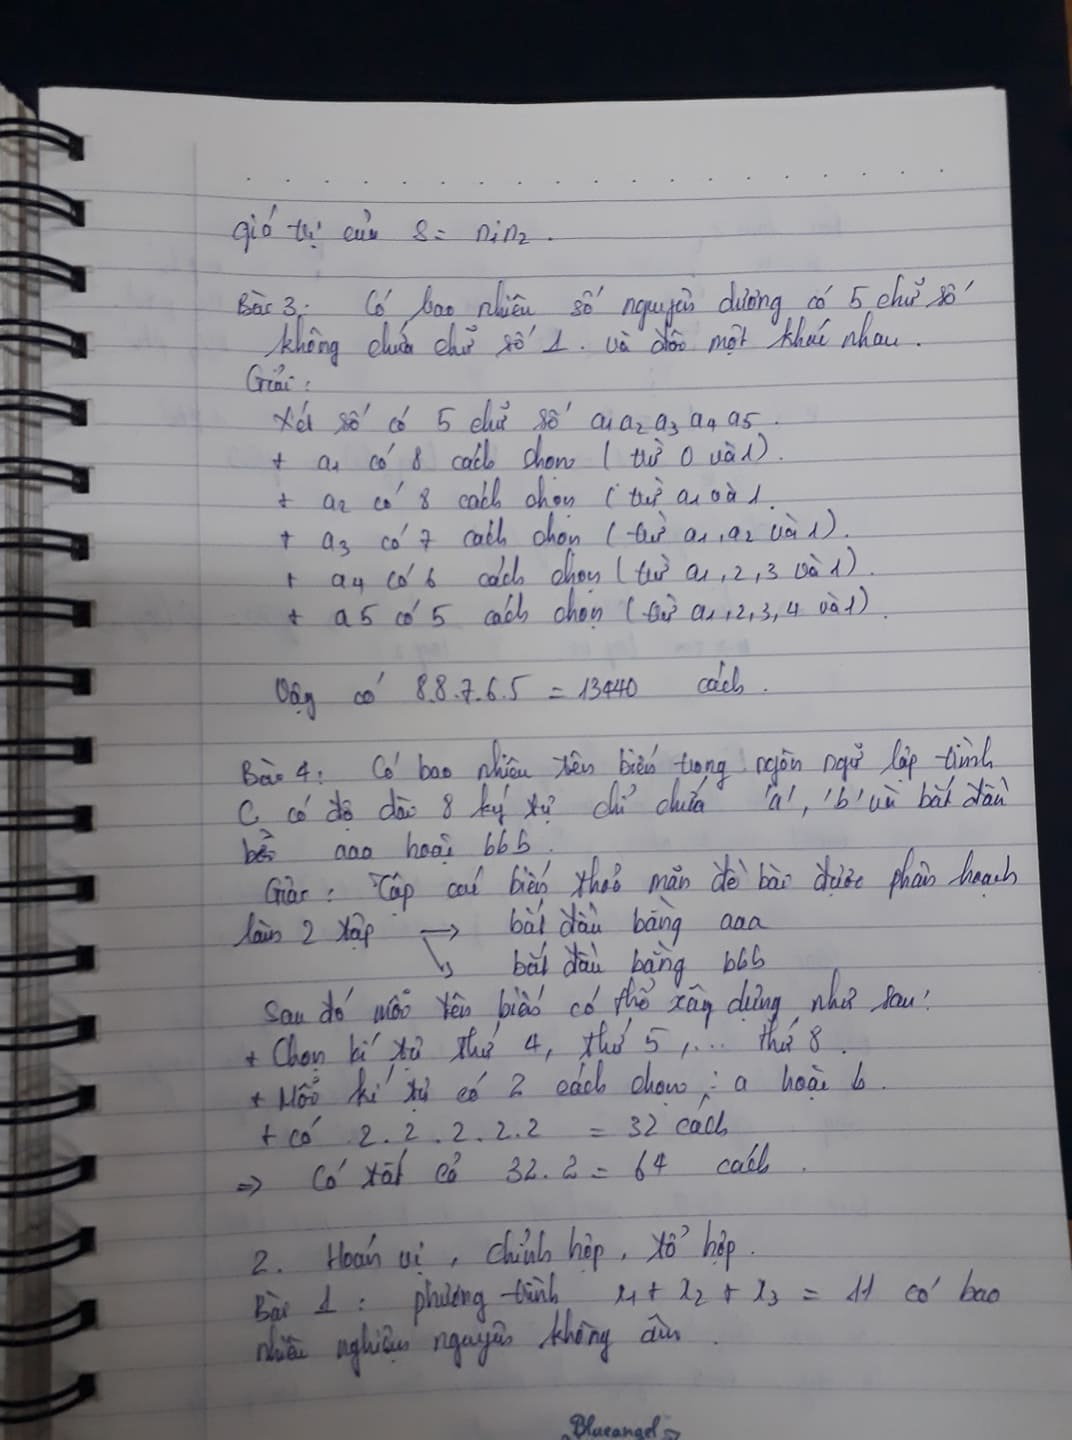 giá trị của S = n1n2.
Bài 3: Có bao nhiêu số nguyên dương có 5 chữ số
không chứa chữ số 1. và đôi một khác nhau.
Giải:
Xét số có 5 chữ số a1a2a3a4a5.
+ a1 có 8 cách chọn (trừ 0 và 1).
+ a2 có 8 cách chọn (trừ a1 và 1.
+ a3 có 7 cách chọn (trừ a1, a2 và 1).
+ a4 có 6 cách chọn (trừ a1, 2, 3 và 1).
+ a5 có 5 cách chọn (trừ a1, 2, 3, 4 và 1).
Vậy có 8.8.7.6.5 = 13440 cách.
Bài 4: Có bao nhiêu tên biến trong ngôn ngữ lập trình
C có độ dài 8 ký tự chỉ chứa 'a', 'b' và bắt đầu
bởi aaa hoặc bbb.
Giải: Tập các biến thoả mãn đề bài được phân hoạch
làm 2 tập → bắt đầu bằng aaa
↘ bắt đầu bằng bbb
Sau đó mỗi tên biến có thể xây dựng như sau:
+ Chọn kí tự thứ 4, thứ 5, ... thứ 8.
+ Mỗi kí tự có 2 cách chọn: a hoặc b.
+ có 2.2.2.2.2 = 32 cách
=> Có tất cả 32.2 = 64 cách.
2. Hoán vị, chỉnh hợp, tổ hợp.
Bài 1: phương trình x1 + x2 + x3 = 11 có bao
nhiêu nghiệm nguyên không âm.
Blueangel